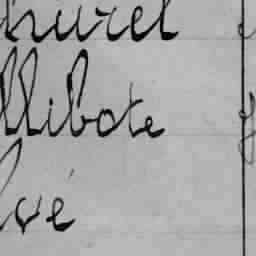 hurel
llibote
lvé